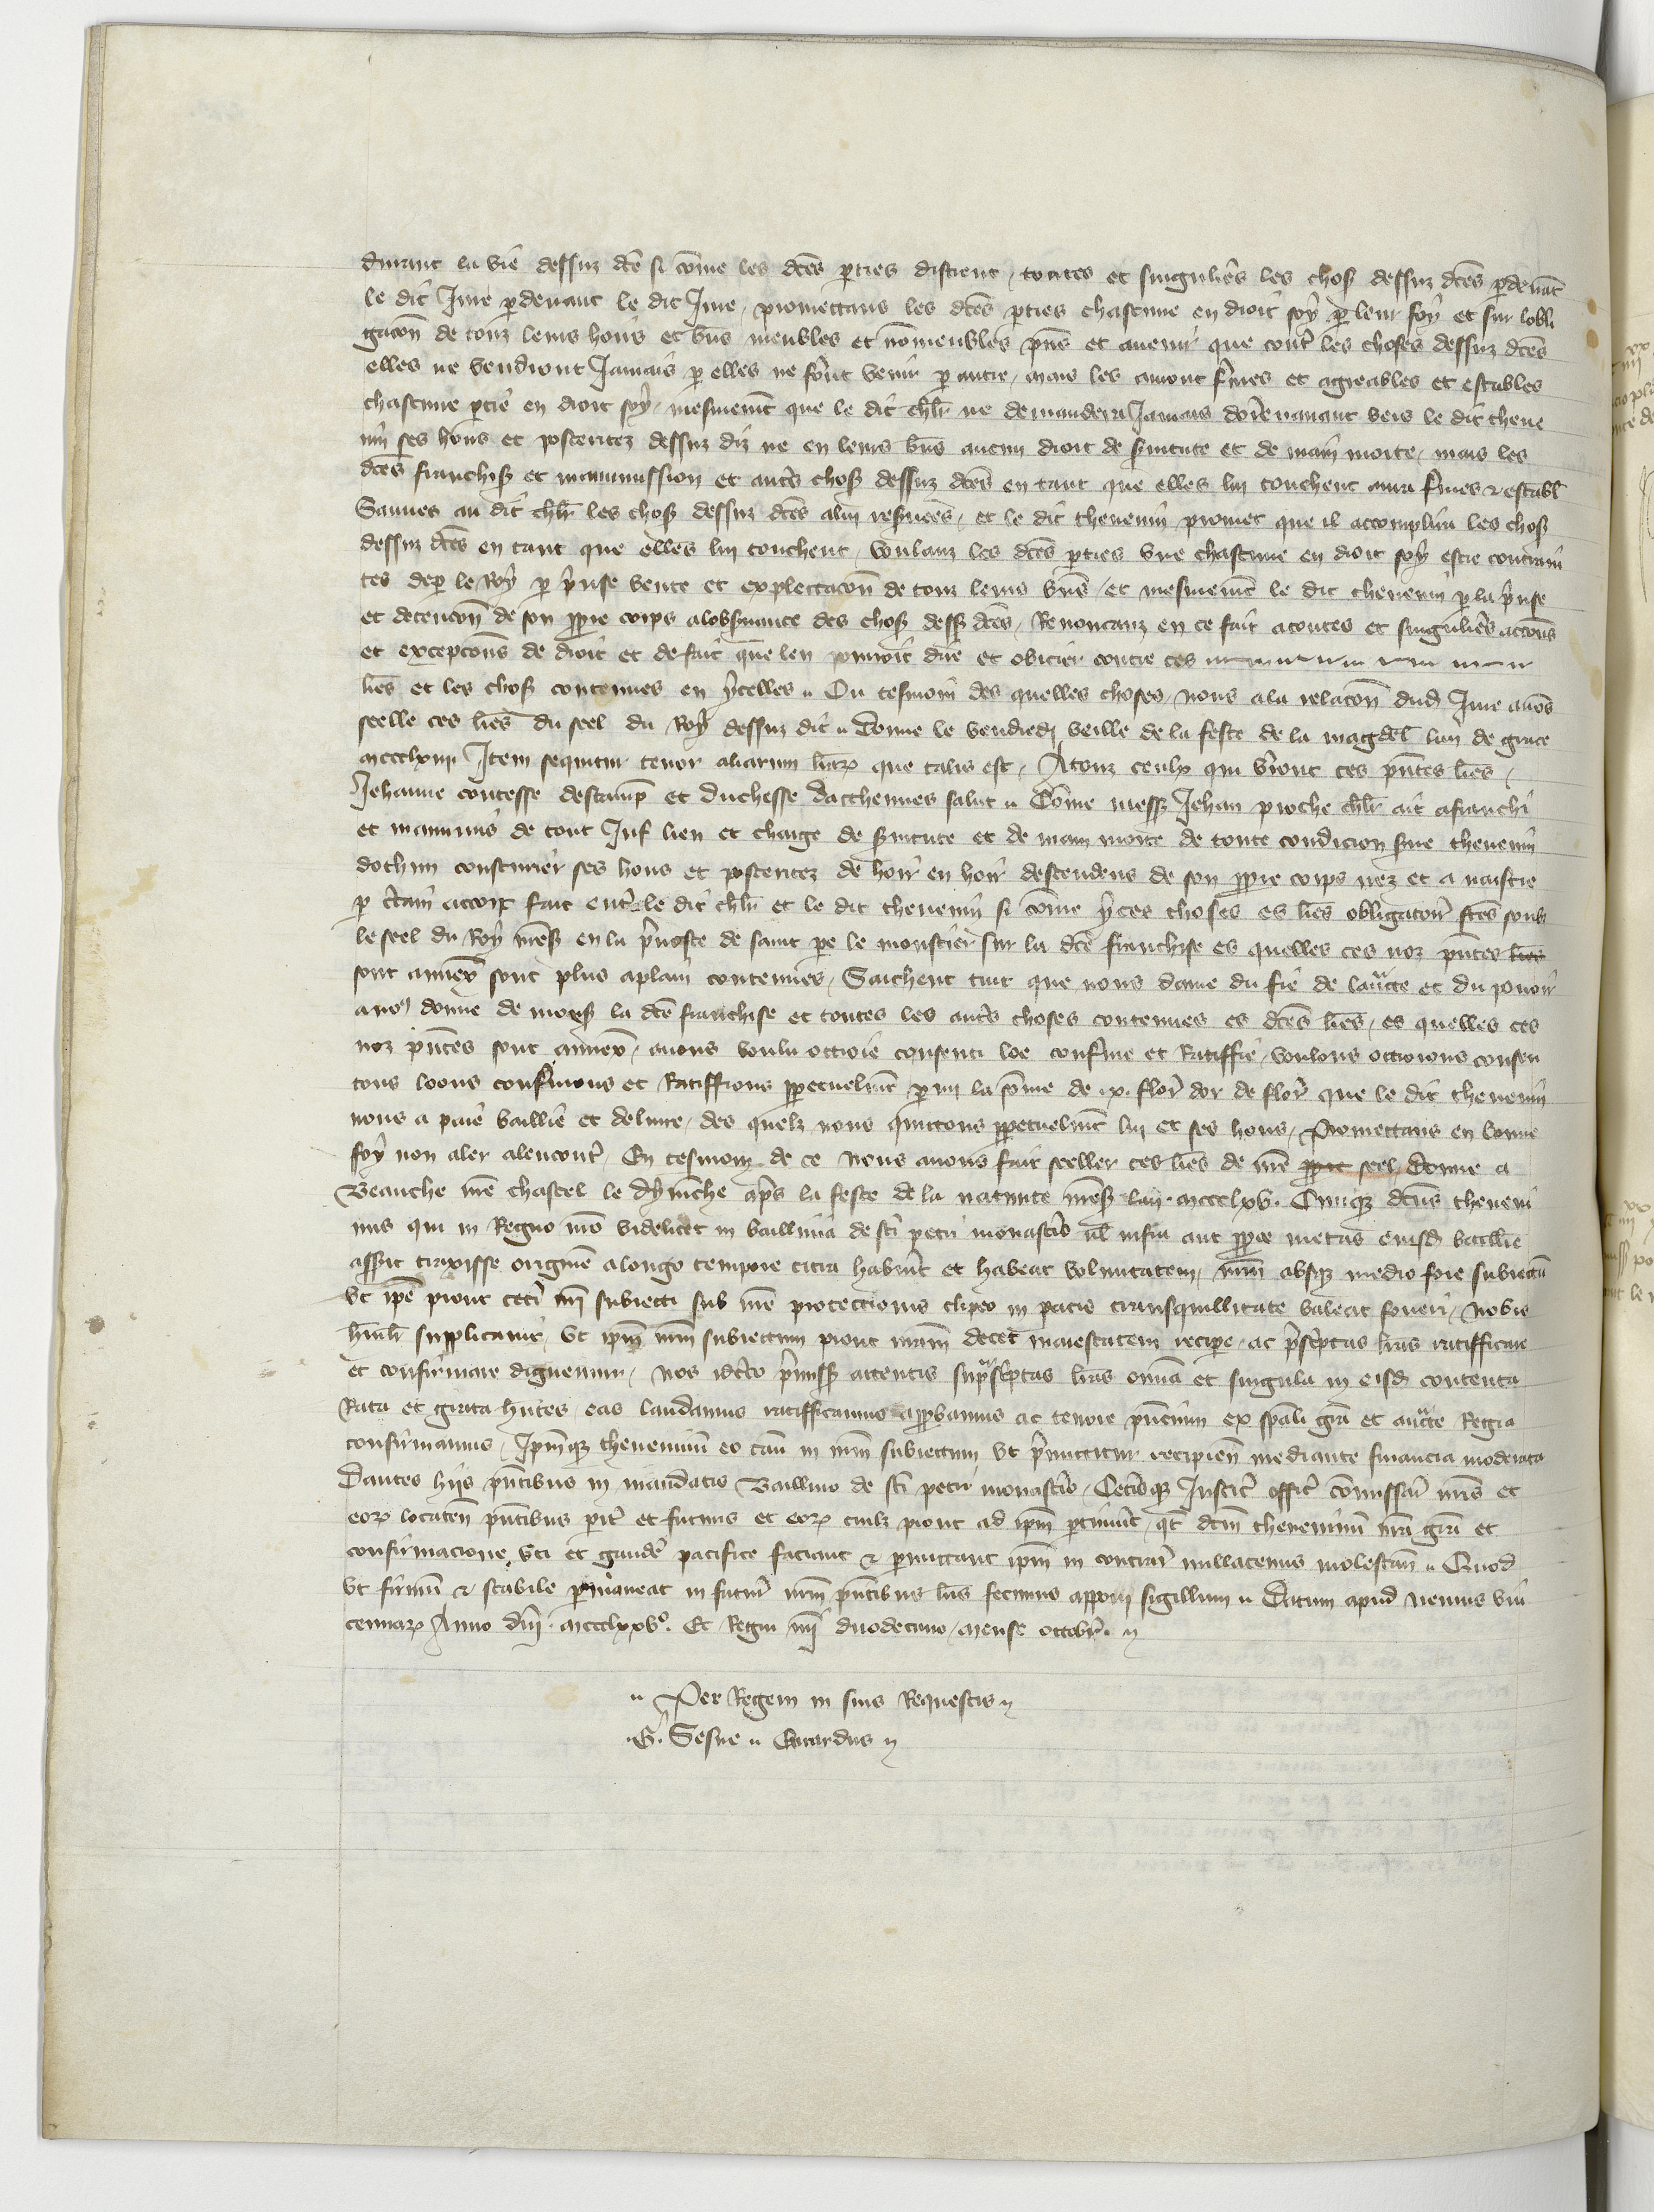 durant la vie dessuz dc̃e si cõme les dc̃es p̱ties disrient , toutes et singulier̃s les choſ dessuz dc̃es p̱devãt
le dit Jure p̱devant le dit Jure , promettans les dc̃es p̱ties chascune en droit soy p̱ leur foy et sur lobli
gacoñ de touz leurs hoirs et bñs meubles et nõmeubles p̃ns et avenir que contr̃ les choses dessuz dc̃es
elles ne vendront Jamais p̱ elles ne feront venir p̱ autre , mais les auront f̃mes et agreables et estables
chascune p̱tie en droit soy , mesmem̃t que le dit chlr̃ ne demandera Jamais dorenavant vers le dit theve
nin ses hoirs et posteritez dessuz diz ne en leurs bñs aucun droit de s̃vitute et de main morte , mais les
dc̃es franchiſ et manumission et autr̃s choſ dessuz dc̃es en tant que elles lui touchent aura f̃mes & establ̃
Sauues au dit chlr̃ les choſ dessuz dc̃es a lui res̃vees , et le dit thevenin promet que il acomplira les choſ
dessuz dc̃es en tant que elles lui touchent , voulanz les dc̃es p̱ties une chascune en droit soy estre contrain
tes dep̱ le Roy p̱ p̃nse vente et explettacoñ de touz leurs bñs , et mesmem̃t le dit thevenin p̱ la p̃nse
et detencoñ de son ꝓpre corps a lobs̃vance des choſ desſ dc̃es , Renoncanz en ce fait a toutes et singulier̃s accoñs
et excepcoñs de droit et de fait que len pourroit dire et obicier contre ces
lr̃es et les choſ contenues en ycelles ,, Ou tesmoin des quelles choses , nous a la relacoñ dud Jure avõs
seelle ces lr̃es du seel du Roy dessuz dit ,, Donne le vendredi veille de la feste de la magdel̃ lan de grace
mccclxiiij. Item sequitur tenor aliarum lr̃aꝝ que talis est , A touz ceulx qui verront ces p̃ntes lr̃es ,
Jehanne contesse destamp̱ et duchesse dacthennes salut ,, Cõme mesſ Jehan proche chlr̃ ait afranchi
et manumis de tout Juf lien et charge de s̃vitute et de main morte de toute condicion s̃ve thevenin
dochin cousturier ses hoirs et posteritez de hoir en hoir descendens de son ꝓpre corps nez et a naistre
p̱ c̃tain accort fait entr̃ le dit chlr̃ et le dit thevenin si cõme yces choses es lr̃es obligatoir̃ fc̃es soubz
le seel du Roy mesſ en la p̃voste de saint pe le moustier sur la dc̃e franchise es quelles ces noz p̃ntes lr̃es
sont annex̃ sont plus a plain contenues , Saichent tuit que nous dame du fie de lauctᵗe et du pouoir
a nous donne de monſ la dc̃e franchise et toutes les autr̃s choses contenues es dc̃es lr̃es , es quelles ces
noz p̃ntes sont annex̃ , avons voulu ottroie consenti loe conf̃me et Ratiffie , voulons ottroions consen
tons loons conf̃mons et Ratiffions ꝑpetuelm̃t p̱ mi la sõme de .x. flor̃ dor de flor̃ que le dit thevenin
nous a paie baillie et delivre , des quelz nous quittons ꝑpetuelm̃t lui et ses hoirs , Promettans en bonne
foy non aler alencontr̃ , En tesmoin de ce nous avons fait seeller ces lr̃es de nr̃e ꝓpre seel , Donne a
Beauche nr̃e chastel le dym̃che apr̃s la feste de la nativite nr̃eſ lan. mccclxv. Cumqꝫ dc̃us theveni
nus qui in Regno nr̃o videlicet in baillivia de scĩ petri monastĩo ũl infra aut ꝓpe metas eiusd̃ baillie
asserit traxisse originẽ a longo tempore citra hab̃vit et habeat voluntatem , nr̃m absqꝫ medio fore subiectũ
Vt ip̃e prout cetĩ nr̃i subiecti sub nr̃e protectionis clipeo in pacis transquillitate valeat foveri , Nobis
hũilr̃ supplicavit , ut ip̃m nr̃m subiectum prout nr̃am decet maiestatem recipe , ac p̃sc̃ptas lr̃as ratifficare
et confirmare dignemur , nos idc̃co p̃missſ attentis sup̃ᵃsc̃ptas lr̃as om̃ia et singula in eisd̃ contenta
Rata et grata hñtes , eas laudamus ratifficamus apꝓbamus ac tenore p̃ncium ex sp̃ali gr̃a et auctᵗe Regia
confirmamus , Ip̃mqꝫ theveninũ eo cañ in nr̃m subiectum ut p̃mittitur recipieñ mediante financia moderata
Dantes hiis p̃ntibus in mandatis Baillivo de scĩ petri monastĩo , Cet̃isqꝫ Justic̃ offic̃ com̃issaĩ nr̃is et
eoꝝ locateñ p̃ntibus parit̃ et futuris et eoꝝ cuil̃z prout ad ip̃m p̱tinũit , qt̃ dc̃m theveninũ nr̃a gr̃a et
confirmacione uti et gaudẽ pacifice faciant & p̱mittant ip̃m in contrar̃ nullatenus molestañ ,, Quod
Vt firmũ & stabile p̱maneat in futur̃ nr̃m p̃ntibus lr̃is fecimus apponi sigillum ,, Datum apud nemus vin
cennaꝝ Anno dnĩ. mccclxxvº. Et Regni nr̃i duodecimo , mense octobr̃. ,,
,, Per Regem in suis Requestis ,,
.G. Sesne ,, Evrardus ,,